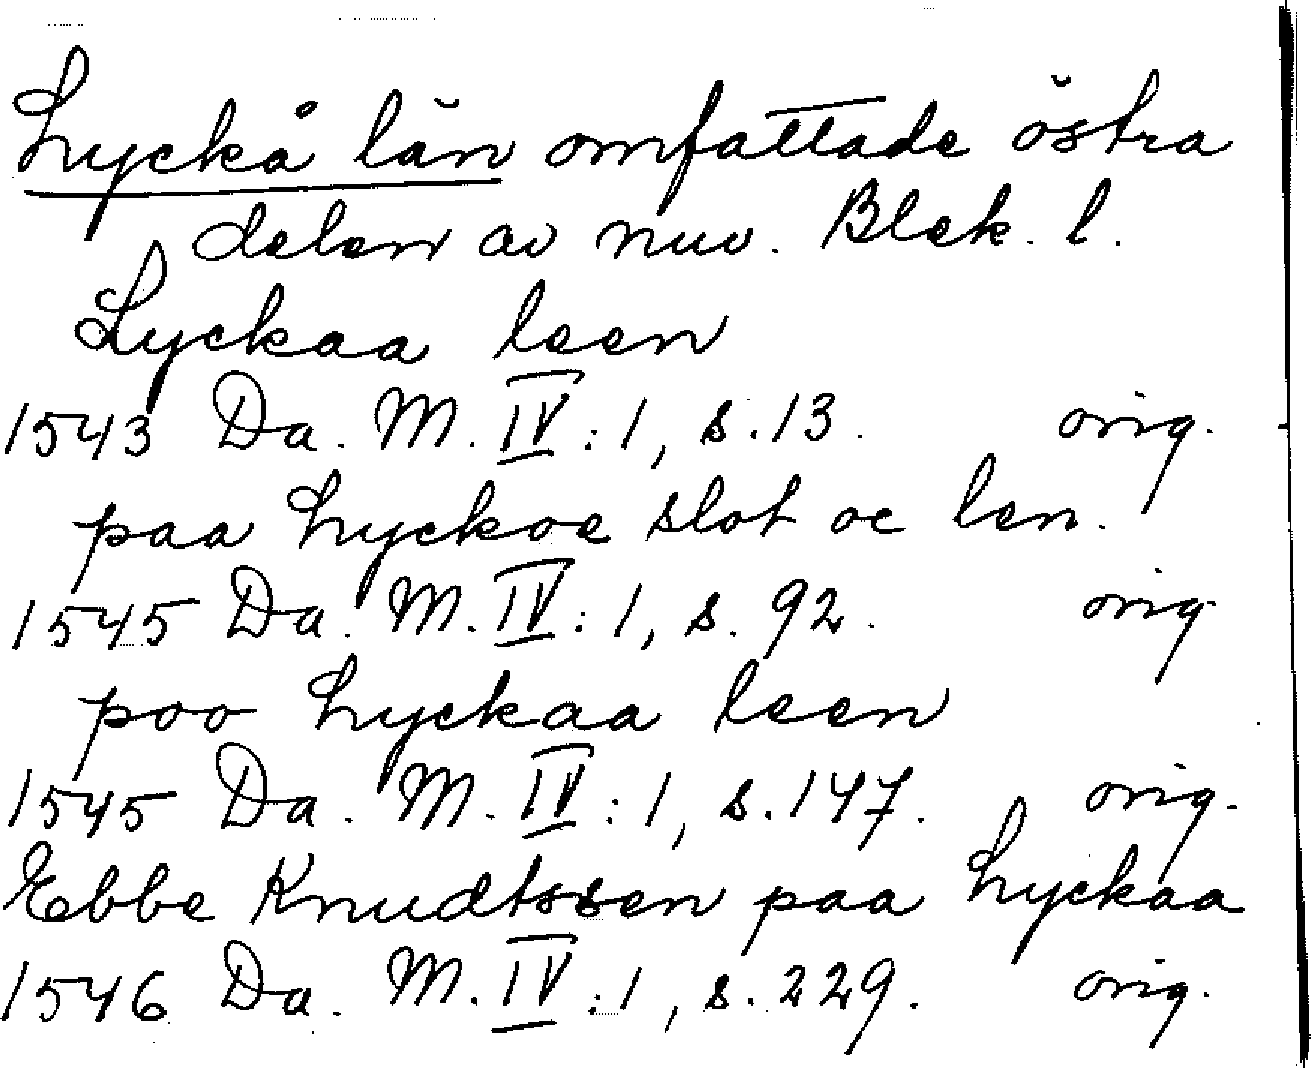 Lyckå län omfattade östra
delen av nuv. Blek. l.
Lyckaa leen
1543 Da. M. IV:1, s. 13. orig.
paa Lyckoe slot oc len.
1545 Da. M. IV:1, s. 92. orig
poo Lyckaa leen
1545 Da. M. IV:1, s. 147. orig.
Ebbe Knudtssen paa Lyckaa
1546 Da. M. IV:1, s. 229. orig.